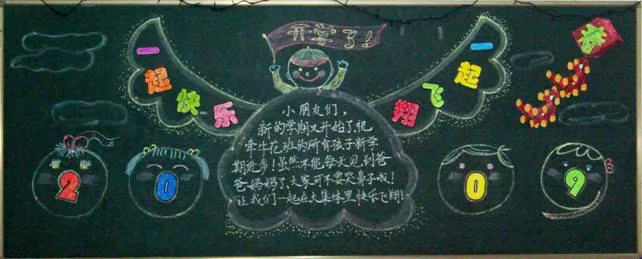 开学了!
一起快乐
一起飞翔
春
小朋友们，
新的学期又开始了,祝
牵牛花班的所有孩子新学
期进步!虽然不能每天见到爸
爸妈妈了,大家可不要哭鼻子哦!
让我们一起在大集体里快乐飞翔!
2009